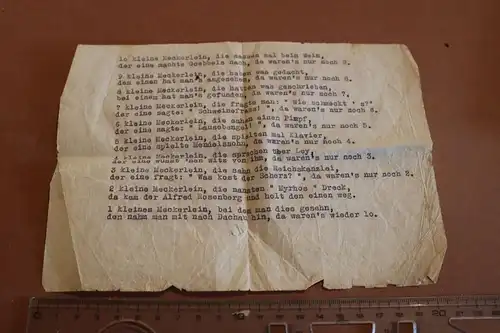 10 kleine Meckerlein, die sassen mal beim Wein,
der eine machte Goebbels nach, da waren's nur noch 9.
9 kleine Meckerlein, die haben was gedacht,
dem einen hat man's angesehen, da waren's nur noch 8.
8 kleine Meckerlein, die hatten was geschrieben,
bei einem hat man's gefunden, da waren's nur noch 7.
7 kleine Meckerlein, die fragte man: "Wie schmeckt 's?"
der eine sagte: " Schweinefrass! ", da waren's nur noch 6.
6 kleine Meckerlein, die sahen einen Pimpf,
der eine sagte: " Lausebengel! ", da waren's nur noch 5.
5 kleine Meckerlein, die spielten mal Klavier,
der eine spielte Mendelssohn, da waren's nur noch 4.
4 kleine Meckerlein, die sprachen über Ley,
der eine wusst' was von ihm, da waren's nur noch 3.
3 kleine Meckerlein, die sahn die Reichskanzlei,
der eine fragt: " Was kost der Scherz? ", da waren's nur noch 2.
2 kleine Meckerlein, die nannten " Myrhos " Dreck,
da kam der Alfred Rosenberg und holt den einen weg.
1 kleines Meckerlein, bei dem man dies gesehn,
den nahm man mit nach Dachau hin, da waren's wieder 10.
10